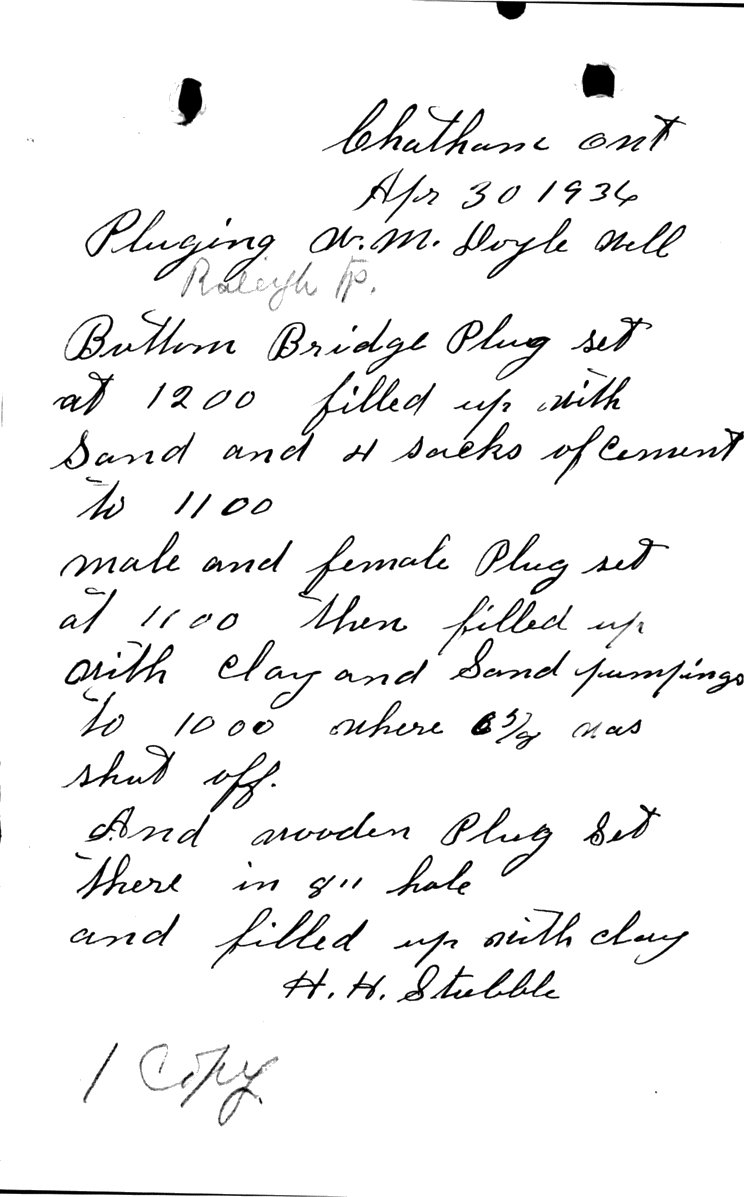 Chatham Ont
Apr 30 1936
Pluging W. M. Doyle Well
Raleigh Tp.
Bottom Bridge Plug set
at 1200 filled up with
Sand and 4 sacks of cement
to 1100
male and female Plug set
at 1100 then filled up
with clay and Sand pumpings
to 1000 where 6 5/8 was
shut off.
And wooden Plug Set
there in 8" hole
and filled up with clay
H. H. Stubble
1 Copy